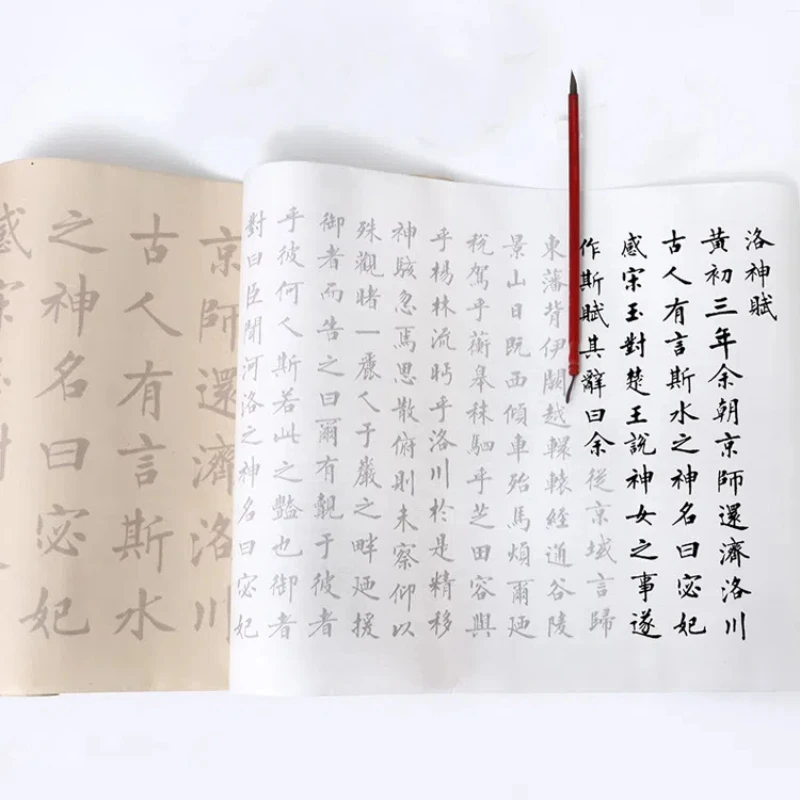 洛神賦
黃初三年余朝京師還濟洛川
古人有言斯水之神名曰宓妃
感宋玉對楚王說神女之事遂
作斯賦其辭曰余從京域言歸
東藩背伊闕越轘轅經通谷陵
景山日既西傾車殆馬煩爾迺
稅駕乎蘅皋秣駟乎芝田容與
乎楊林流眄乎洛川於是精移
神駭忽焉思散俯則未察仰以
殊觀睹一麗人于巖之畔迺援
御者而告之曰爾有覿于彼者
乎彼何人斯若此之豔也御者
對曰臣聞河洛之神名曰宓妃
京師還濟洛川
古人有言斯水
之神名曰宓妃
感宋玉對